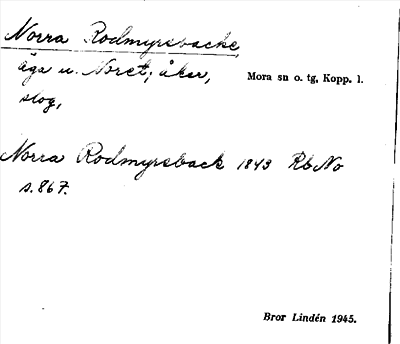 Norra Rodmyrsbacke,
äga u. Noret; åker,
slog,
Mora sn o. tg, Kopp. l.
Norra Rodmyrsback 1843 Rb No
s. 867.
Bror Lindén 1945.